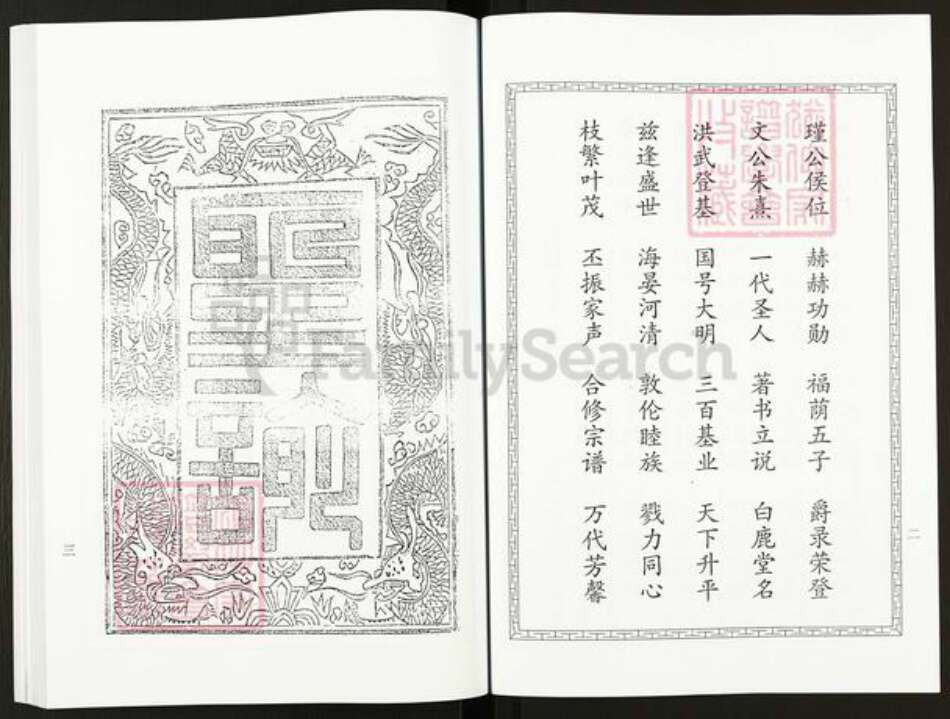 瑾公侯位 赫赫功勋 福荫五子 爵录荣登
文公朱熹 一代圣人 著书立说 白鹿堂名
洪武登基 国号大明 三百基业 天下升平
兹逢盛世 海晏河清 敦伦睦族 戮力同心
枝繁叶茂 丕振家声 合修宗谱 万代芳馨
二
三
FamilySearch